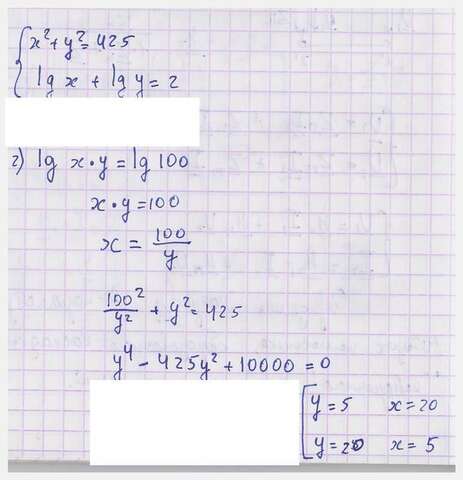 x²+y²=425
lg x + lg y = 2
2) lg x•y = lg 100
x•y=100
x = 100/y
100²/y² + y² = 425
y⁴ - 425y² + 10000 = 0
y=5 x=20
y=20 x=5